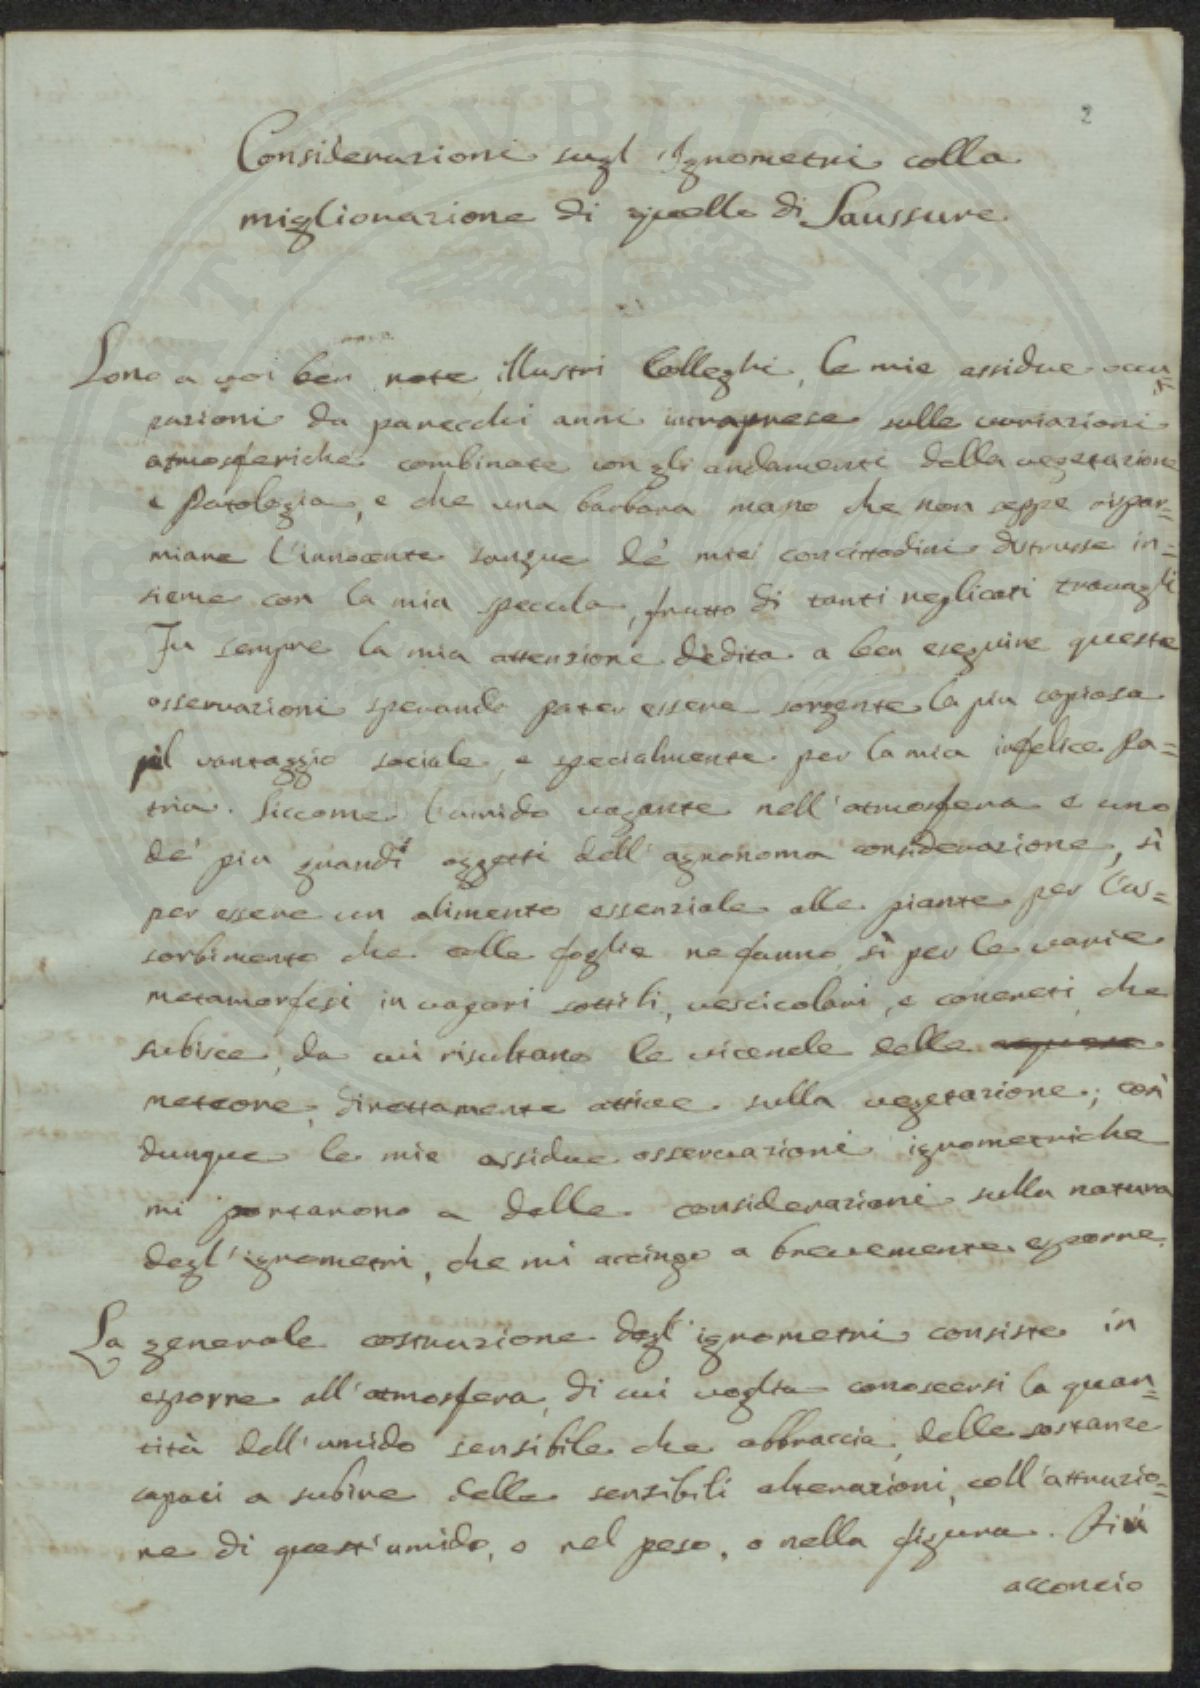 2
Considerazioni sugl'Ignometri colla
migliorazione di quello di Saussure
Sono a voi ben note illustri Colleghi, le mie assidue occu=
pazioni da parecchi anni intraprese sulle variazioni
atmosferiche combinate con gli andamenti della vegetazione
e Patologia, e che una barbara mano che non seppe rispar=
miare l'innocente sangue de' miei concittadini distrusse in=
sieme con la mia specula, frutto di tanti replicati travagli
Fu sempre la mia attenzione dedita a ben eseguire queste
osservazioni sperando poter essere sorgente la piu copiosa
pil vantaggio sociale, e specialmente per la mia infelice Pa=
tria. Siccome l'umido vagante nell'atmosfera e uno
de' piu grandi oggetti dell'agronoma considerazione, sì
per essere un alimento essenziale alle piante per l'as=
sorbimento che colle foglie ne fanno, sì per le varie
metamorfesi in vapori sottili, vescicolari, e concreti che
subisce, da cui risultano le vicende delle
meteore, direttamente attive sulla vegetazione; così
dunque le mie assidue osservazioni ignometriche
mi portarono a delle considerazioni sulla natura
degl'ignometri, che mi accingo a brevemente esporre.
La generale costruzione degl'ignometri consiste in
esporre all'atmosfera, di cui voglia conoscersi la quan=
tità dell'umido sensibile che abbraccia, delle sostanze
capaci a subire delle sensibili alterazioni, coll'attrazio=
ne di quest'umido, o nel peso, o nella figura. Più
acconcio